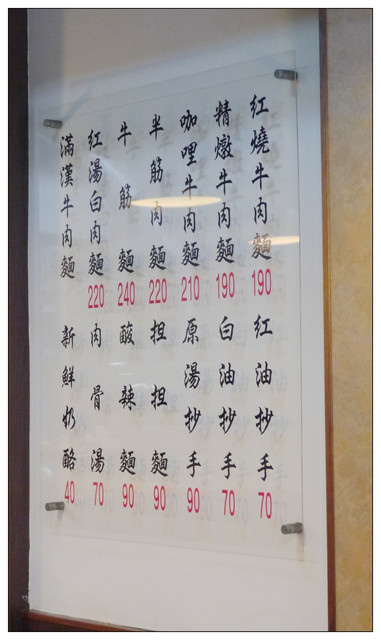 紅燒牛肉麵 190
精燉牛肉麵 190
咖哩牛肉麵 210
半筋肉麵 220
牛筋麵 240
紅湯白肉麵 220
滿漢牛肉麵
紅油抄手 70
白油抄手 70
原湯抄手 90
担担麵 90
酸辣麵 90
肉骨湯 70
新鮮奶酪 40